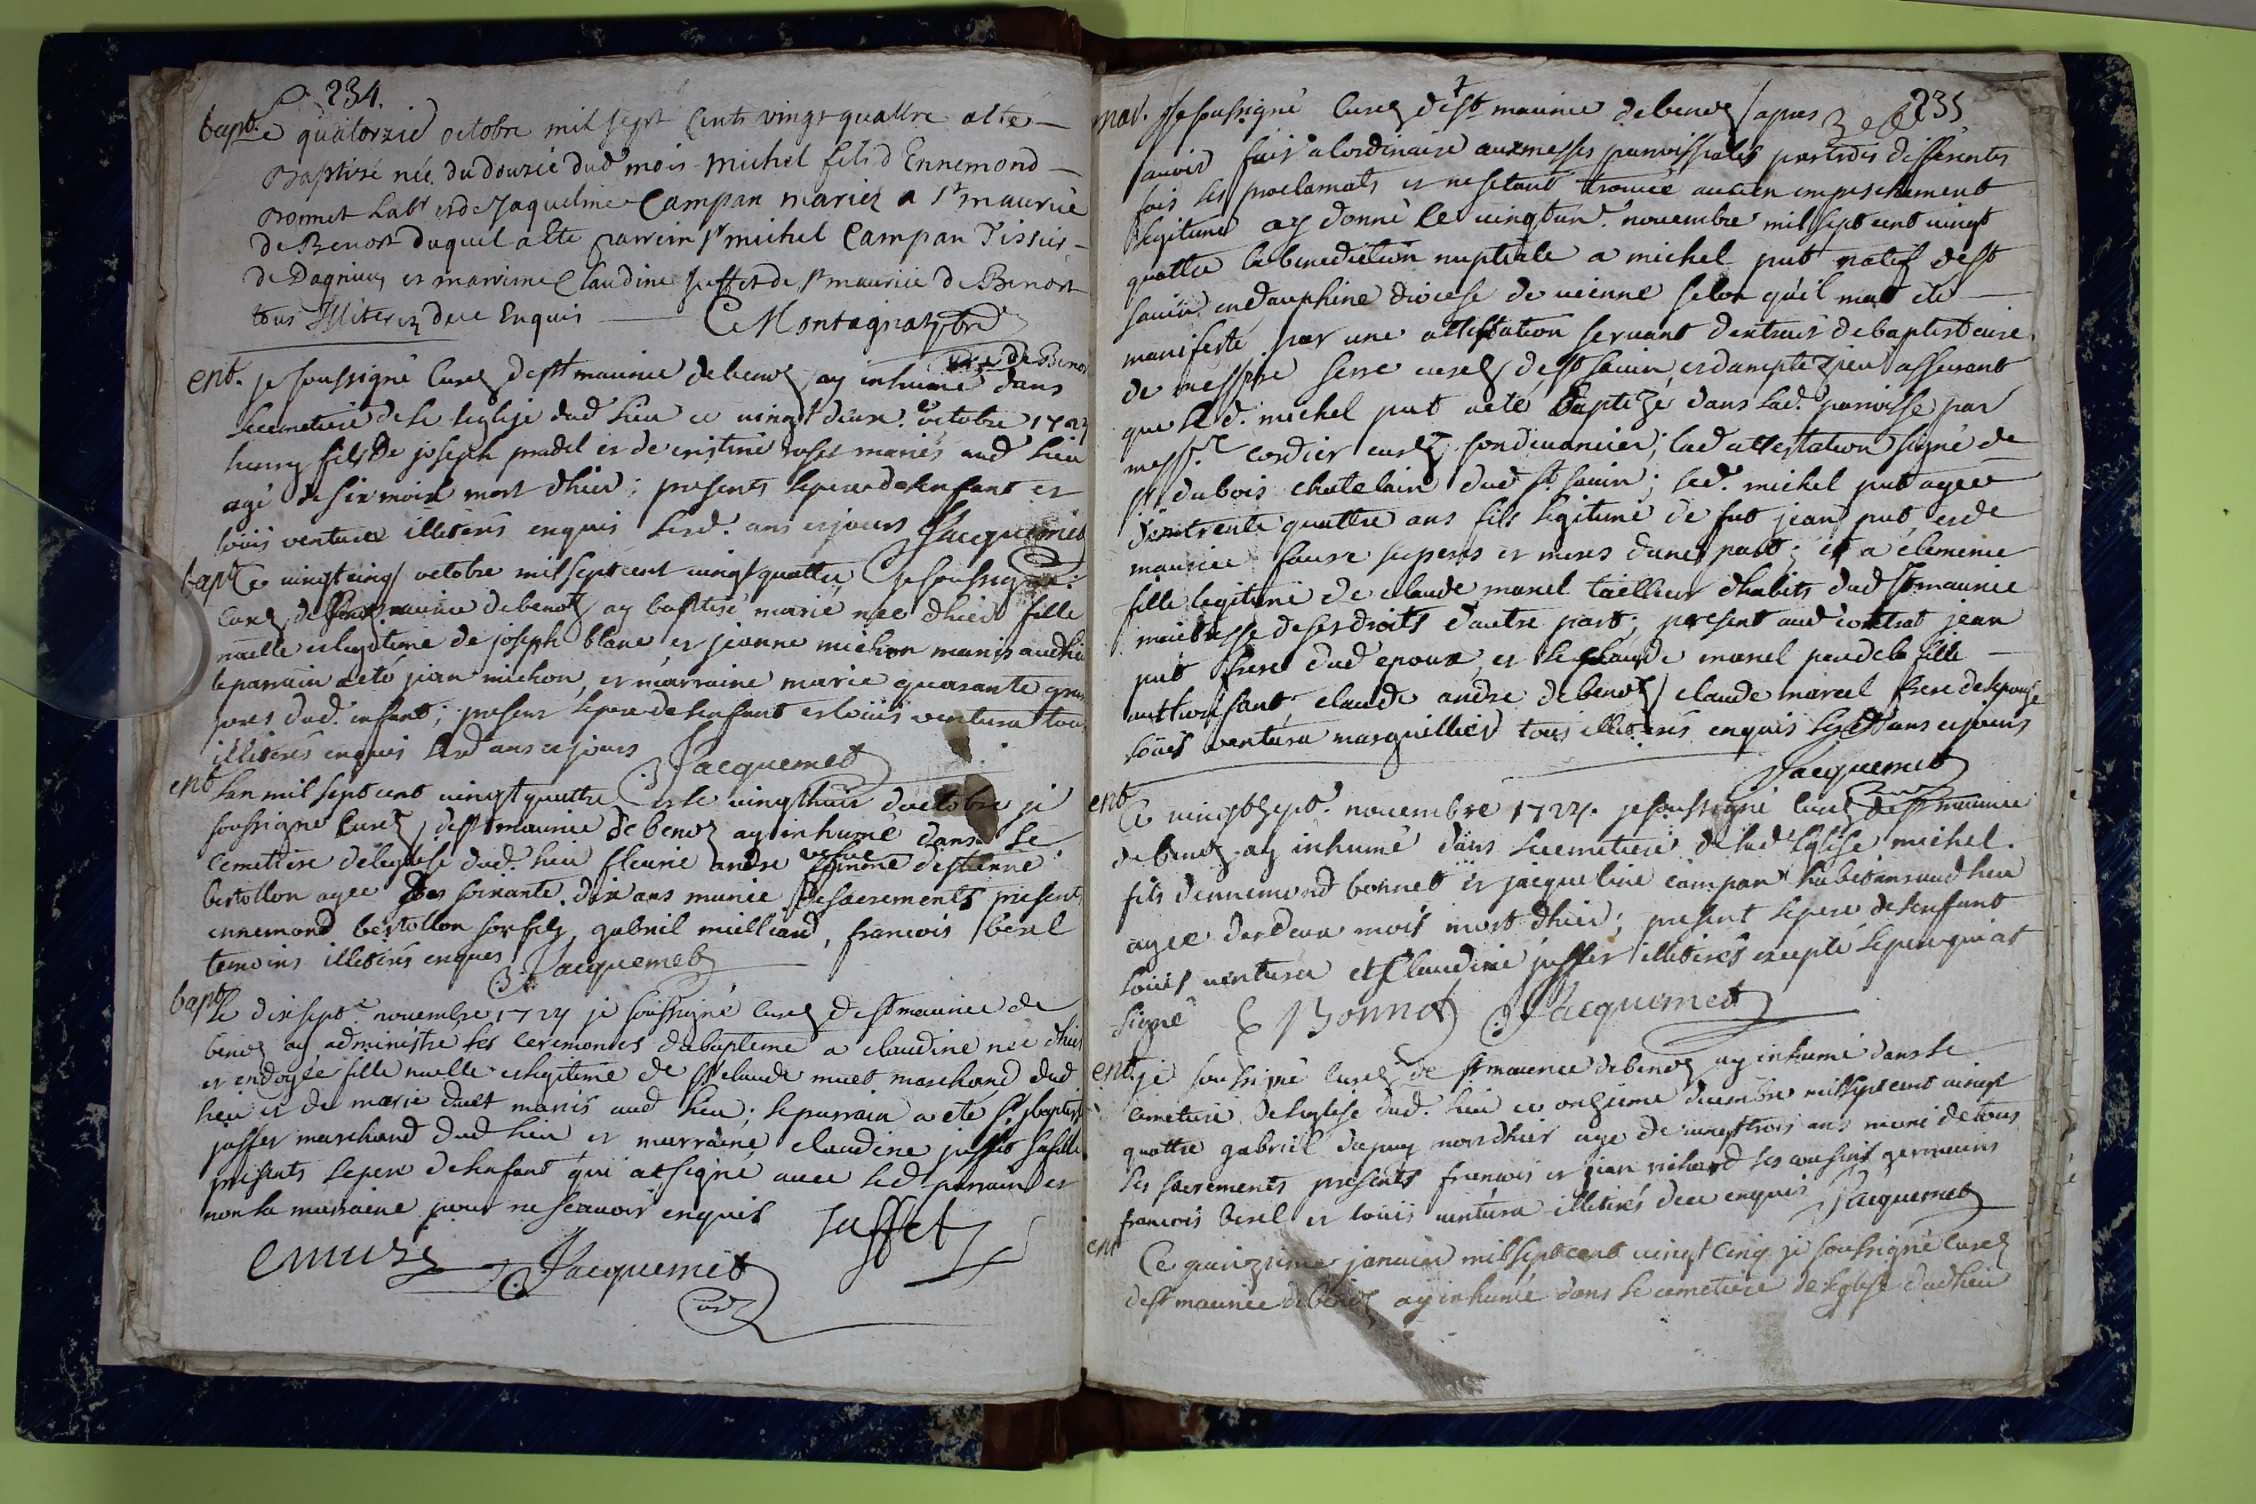 234.
bapt. Ce quatorzie octobre mil sept cents vingt quattre a esté
Baptisé née du douzie dud mois Michel fils d'Ennemond
Bonnet Labr et de Jaqueline Campan mariez a st maurice
De Benost duquel a esté parrein sr michel Campan
de Dagnieu et marreine Claudine Juffet de st maurice de Benost
tous Illiterez de ce Enquis C Montagnat
ent. je soussigné Curez de st maurice de benoz ay inhumé dans
le cemetiere de l'eglise dud lieu ce vingt deux octobre 1724
henry fils de joseph pradel et de cristine mariés aud lieu
agé de six mois mort d'hier; presents le pere de l'enfant et
loüis ventura illiterés enquis lesd. ans et jours Jacquemet
bapt Ce vingt cinq octobre mil sept cent vingt quattre je soussigné
Curez de st maurice de benoz ay baptisé marie née d'hier fille
naelle et legitime de joseph blanc et jeanne michon mariés aud lieu
le parrain a eté jean michon, et marraine marie quarante
dud. enfant; present le pere de l'enfant et loüis ventura tous
illiterés enquis lesd ans et jours Jacquemet
ent L'an mil sept cent vingt quattre et le vingt huit d'octobre je
soussigné Curez de st maurice de benoz ay inhumé dans le
cemettiere de l'eglise dud. lieu fleurie andre vefve femme d'estienne
bertollon agee de soixante. dix ans munie de sacrements presents
ennemond bertollon son fils, gabriel milliand, francois berel
temoins illiterés enquis Jacquemet
bapt Le dix sept novembre 1724 je soussigné Curez de st maurice de
benoz ay administré les ceremonies du bapteme a claudine née d'hier
et endoyée fille naelle et legitime de sr claude muet marchand dud
lieu et de marie duet mariés aud lieu; le parrain a ete sr jbaptiste
juffet marchand dud lieu et marraine claudine juffet sa fille
presents le pere de l'enfant qui at signé avec led parrain et
non la marraine pour ne scavoir enquis Juffet
Jacquemet
Curez
235
mar. Je soussigné Curez de st maurice de benoz / apres
avoir fait a l'ordinaire aux messes parroissiales par trois differentes
fois les proclamats et ne s'etant trouvé aucun empeschement
legitime ay donné le vingt un novembre mil sept cent vingt
quattre la benediction nuptiale a michel put natif de st
savin en dauphine diocese de vienne selon qu'il m'at eté
manifesté par une attestation servant d'extrait de baptistaire
de messire serre curez de st savin et asseurant
que led. michel put a eté baptizé dans lad. parroisse par
messr cordier curez son devancier; lad attestation signé de
sr dubois chatelain dud st savin; led. michel put agee
d'entrente quattre ans fils legitime de fut jean put et de
maurice faure ses peres et meres d'une part; et a clemence
fille legitime de claude marel tailleur d'habits dud st maurice
maitresse de ses droits d'autre part; present aud contrat jean
put frere dud epoux, et led claude marel pere de la fille
authorisant, claude andre de benoz / claude marcel frere de l'epouse
loüis ventura marguillier tous illiterés enquis lesd ans et jours
Jacquemet
ent Ce vingt sept novembre 1724. je soussigné Curez de st maurice
de benoz ay inhumé dans le cemetiere de lad Eglise michel.
fils d'ennemond bonnet et jacqueline campan habitans aud lieu
agee de deux mois mort d'hier; present le pere de l'enfant
loüis ventura et Claudine juffet illiterés excepté le pere qui at
signé E Bonnet Jacquemet
ent. je soussigné Curez de st maurice de benoz ay inhumé dans le
cemetiere de l'eglise dud. lieu ce onzieme decembre mil sept cent vingt
quattre gabriel dupuy mort d'hier agé de vingt trois ans muni de tous
les sacrements presents francois et jean richard ses cousins germains
francois berel et loüis ventura illiterés de ce enquis Jacquemet
ent Ce quinzieme janvier mil sept cent vingt cinq je soussigné Curez
de st maurice de benoz ay inhumé dans le cemetiere de l'eglise dud lieu